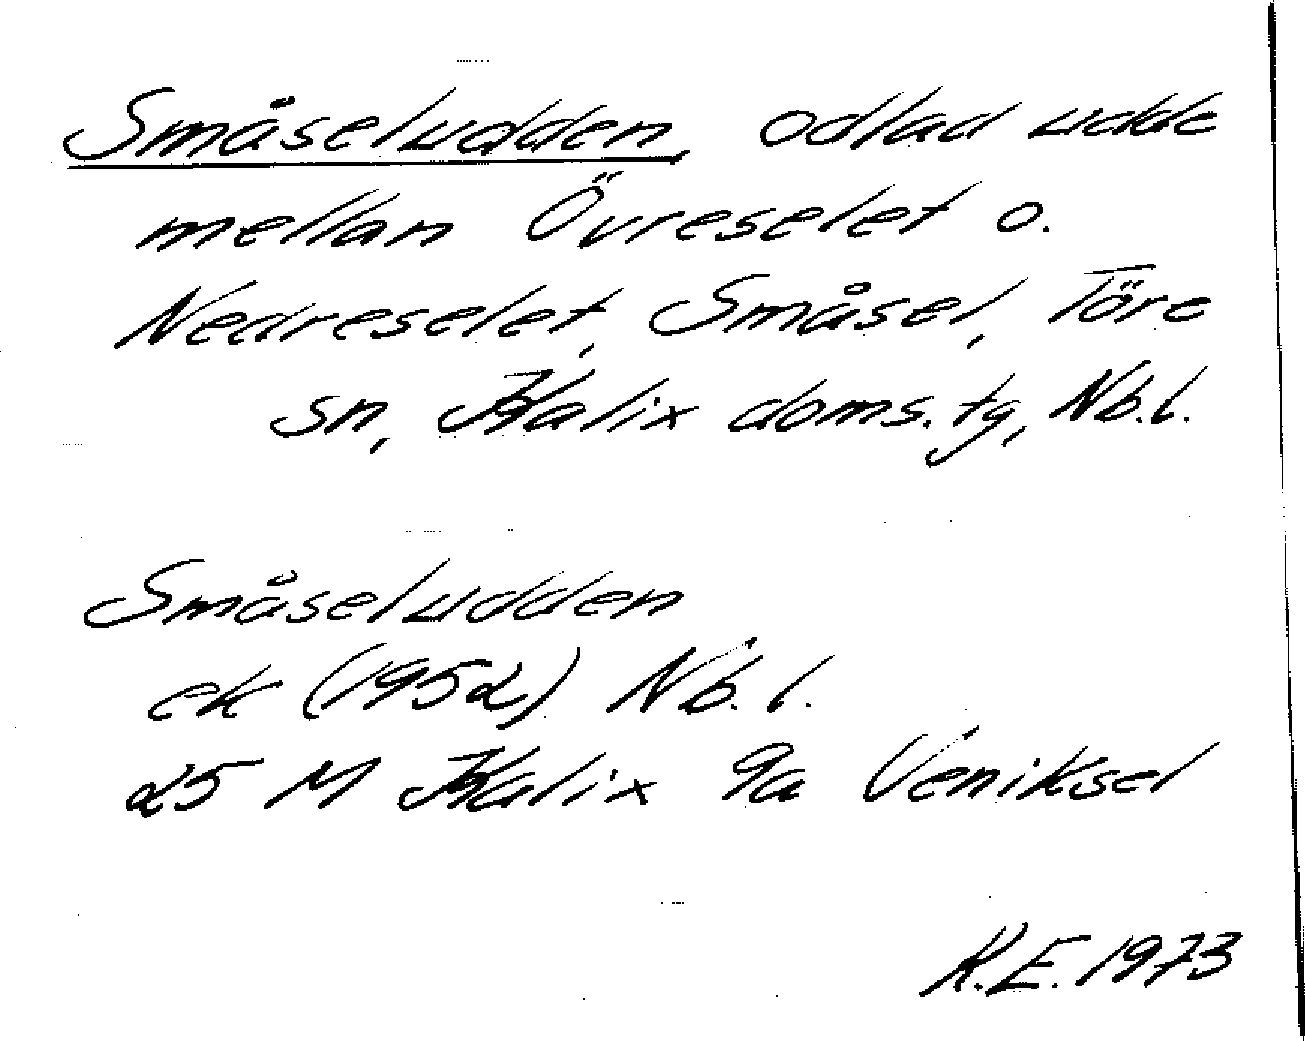 Småseludden, odlad udde
mellan Övreselet o.
Nedreselet, Småsel, Töre
sn, Kalix doms. tg, Nb.l.
Småseludden
ek (1952) Nb. l.
25 M Kalix 9a Veniksel
K.E. 1973